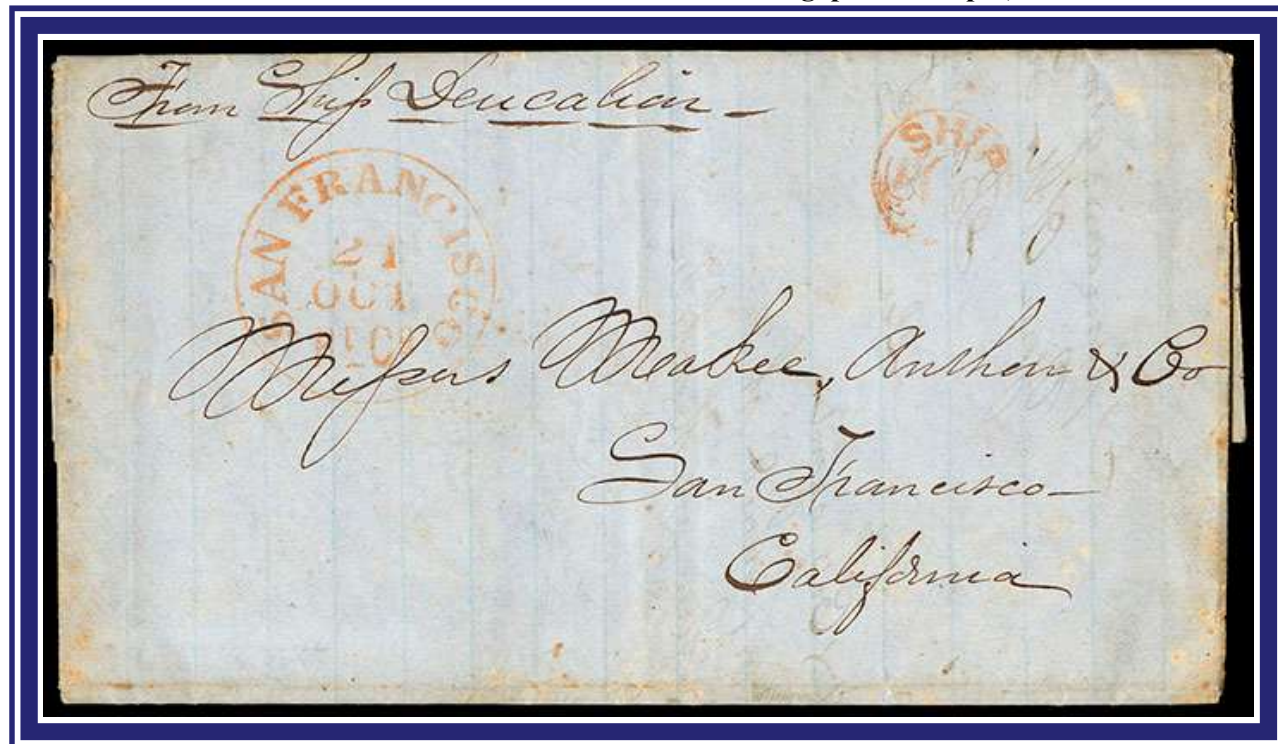 From Ship Deucalion -
SHIP
SAN FRANCISCO
21
OCT
Messrs Meakee, Anthon & Co
San Francisco -
California